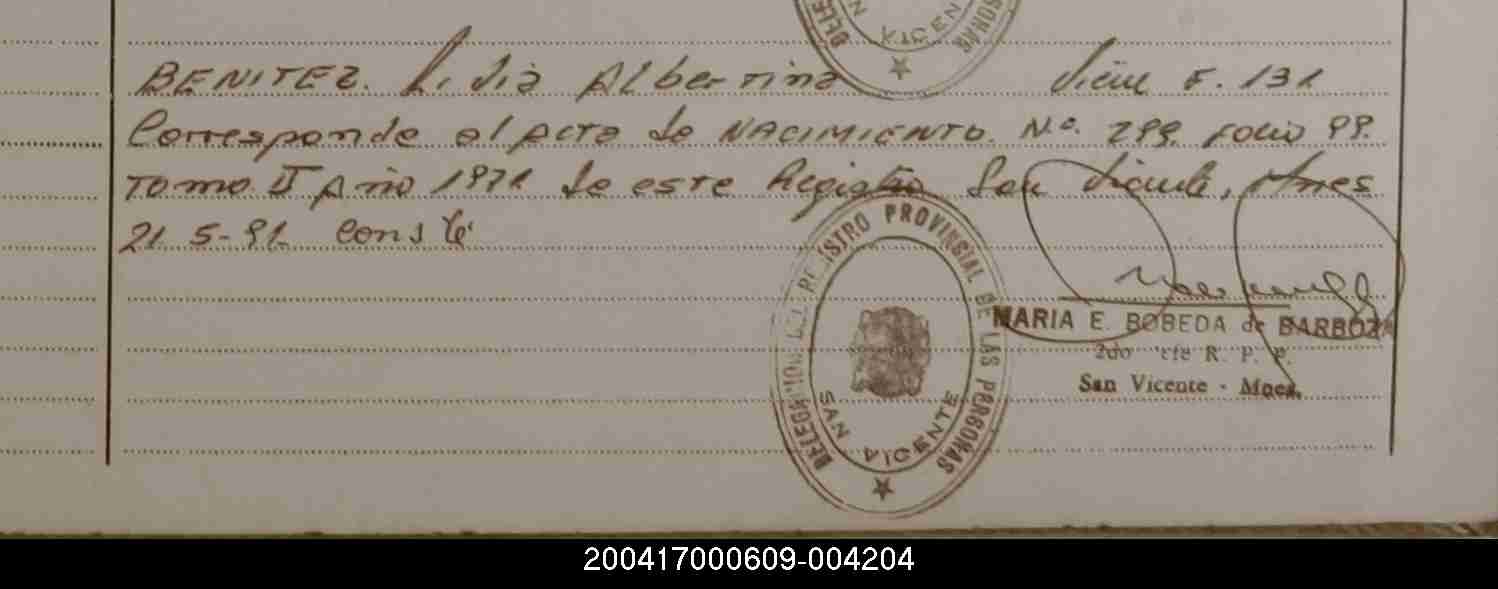 BENITEZ. Lidia Albertina Viene F. 131
Corresponde al Acta de NACIMIENTO. Nº. 299. Folio 99.
Tomo II Año 1971 de este Registro San Vicente, Mnes
21 5-91. Conste
DELEGACION DEL REGISTRO PROVINCIAL DE LAS PERSONAS
SAN VICENTE
MARIA E. BOBEDA de BARBOZA
2do R. P. P.
San Vicente - Mnes.
200417000609-004204